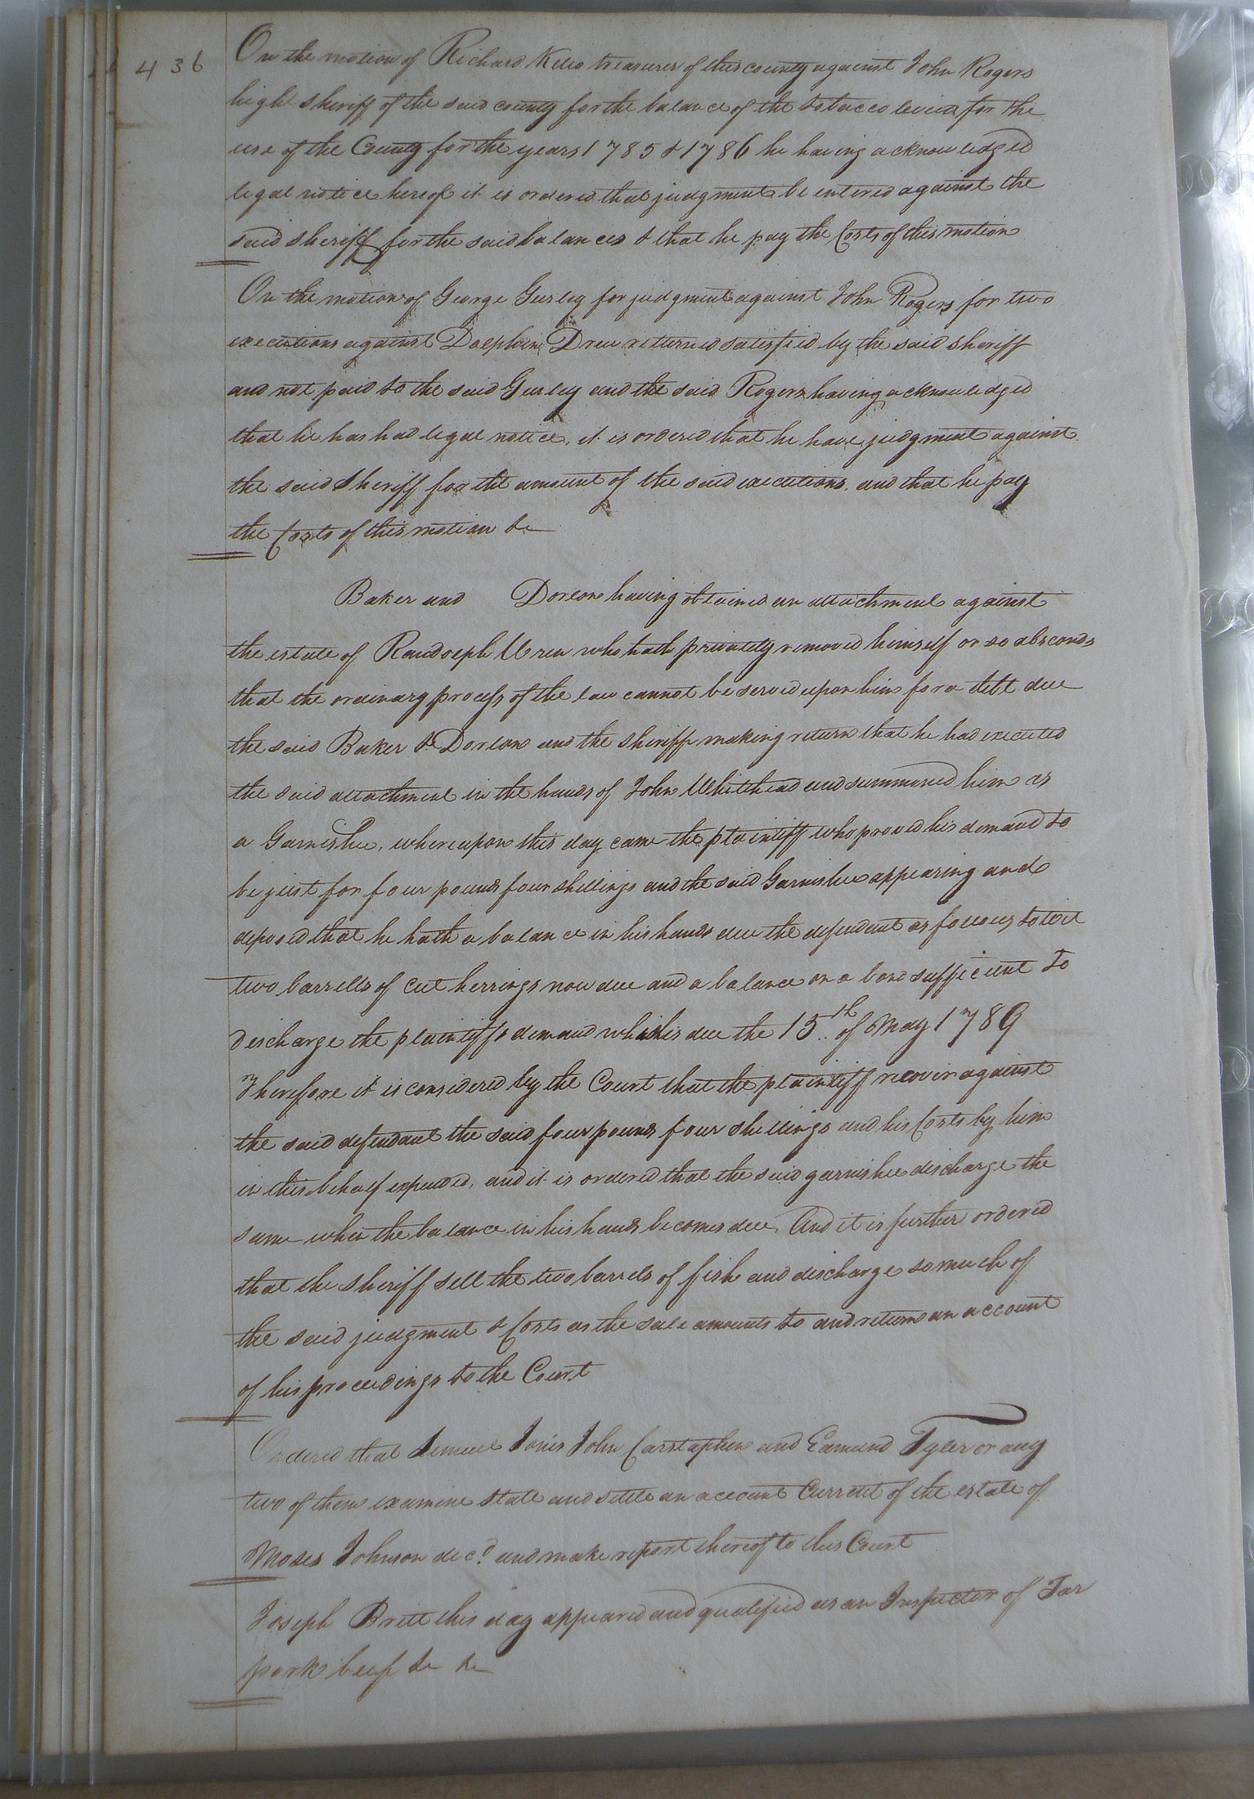 436
On the motion of Richard Kello treasurer of this county against John Rogers
high sheriff of the said county for the balance of the tobacco levied for the
use of the County for the years 1785 & 1786 he having acknowledged
legal notice hereof it is ordered that judgment be entered against the
said sheriff for the said balances & that he pay the Costs of this motion
On the motion of George Gurley for judgment against John Rogers for two
executions against Dolphin Drew returned satisfied by the said sheriff
and not paid to the said Gurley and the said Rogers having acknowledged
that he has had legal notice, it is ordered that he have judgment against
the said Sheriff for the amount of the said executions, and that he pay
the Costs of this motion &c
Baker and Dorlon having obtained an attachment against
the estate of Randolph Uren who hath privately removed himself or so absconds
that the ordinary process of the law cannot be served upon him for a debt due
the said Baker & Dorlon and the sheriff making return that he had executed
the said attachment in the hands of John Whitehead and summoned him as
a Garnishee, whereupon this day came the plaintiff who proved his demand to
be just for four pounds four shillings and the said Garnishee appearing and
deposed that he hath a balance in his hands due the defendant as follows towit
two barrells of cut herrings now due and a balance on a bond sufficient to
discharge the plaintiffs demand which is due the 15th of May 1789
Therefore it is considered by the Court that the plaintiff recover against
the said defendant the said four pounds four shillings and his Costs by him
in this behalf expended, and it is ordered that the said garnishee discharge the
same when the balance in his hands becomes due, And it is further ordered
that the sheriff sell the two barrels of fish and discharge so much of
the said judgment & Costs as the sale amounts to and return an account
of his proceedings to the Court
Ordered that Lemuel Jones John Carstaphen and Edmund Tyler or any
two of them examine state and settle an account Current of the estate of
Moses Johnson decd. and make report thereof to this Court
Joseph Britt this day appeared and qualified as an Inspector of Tar
pork beef &c &c